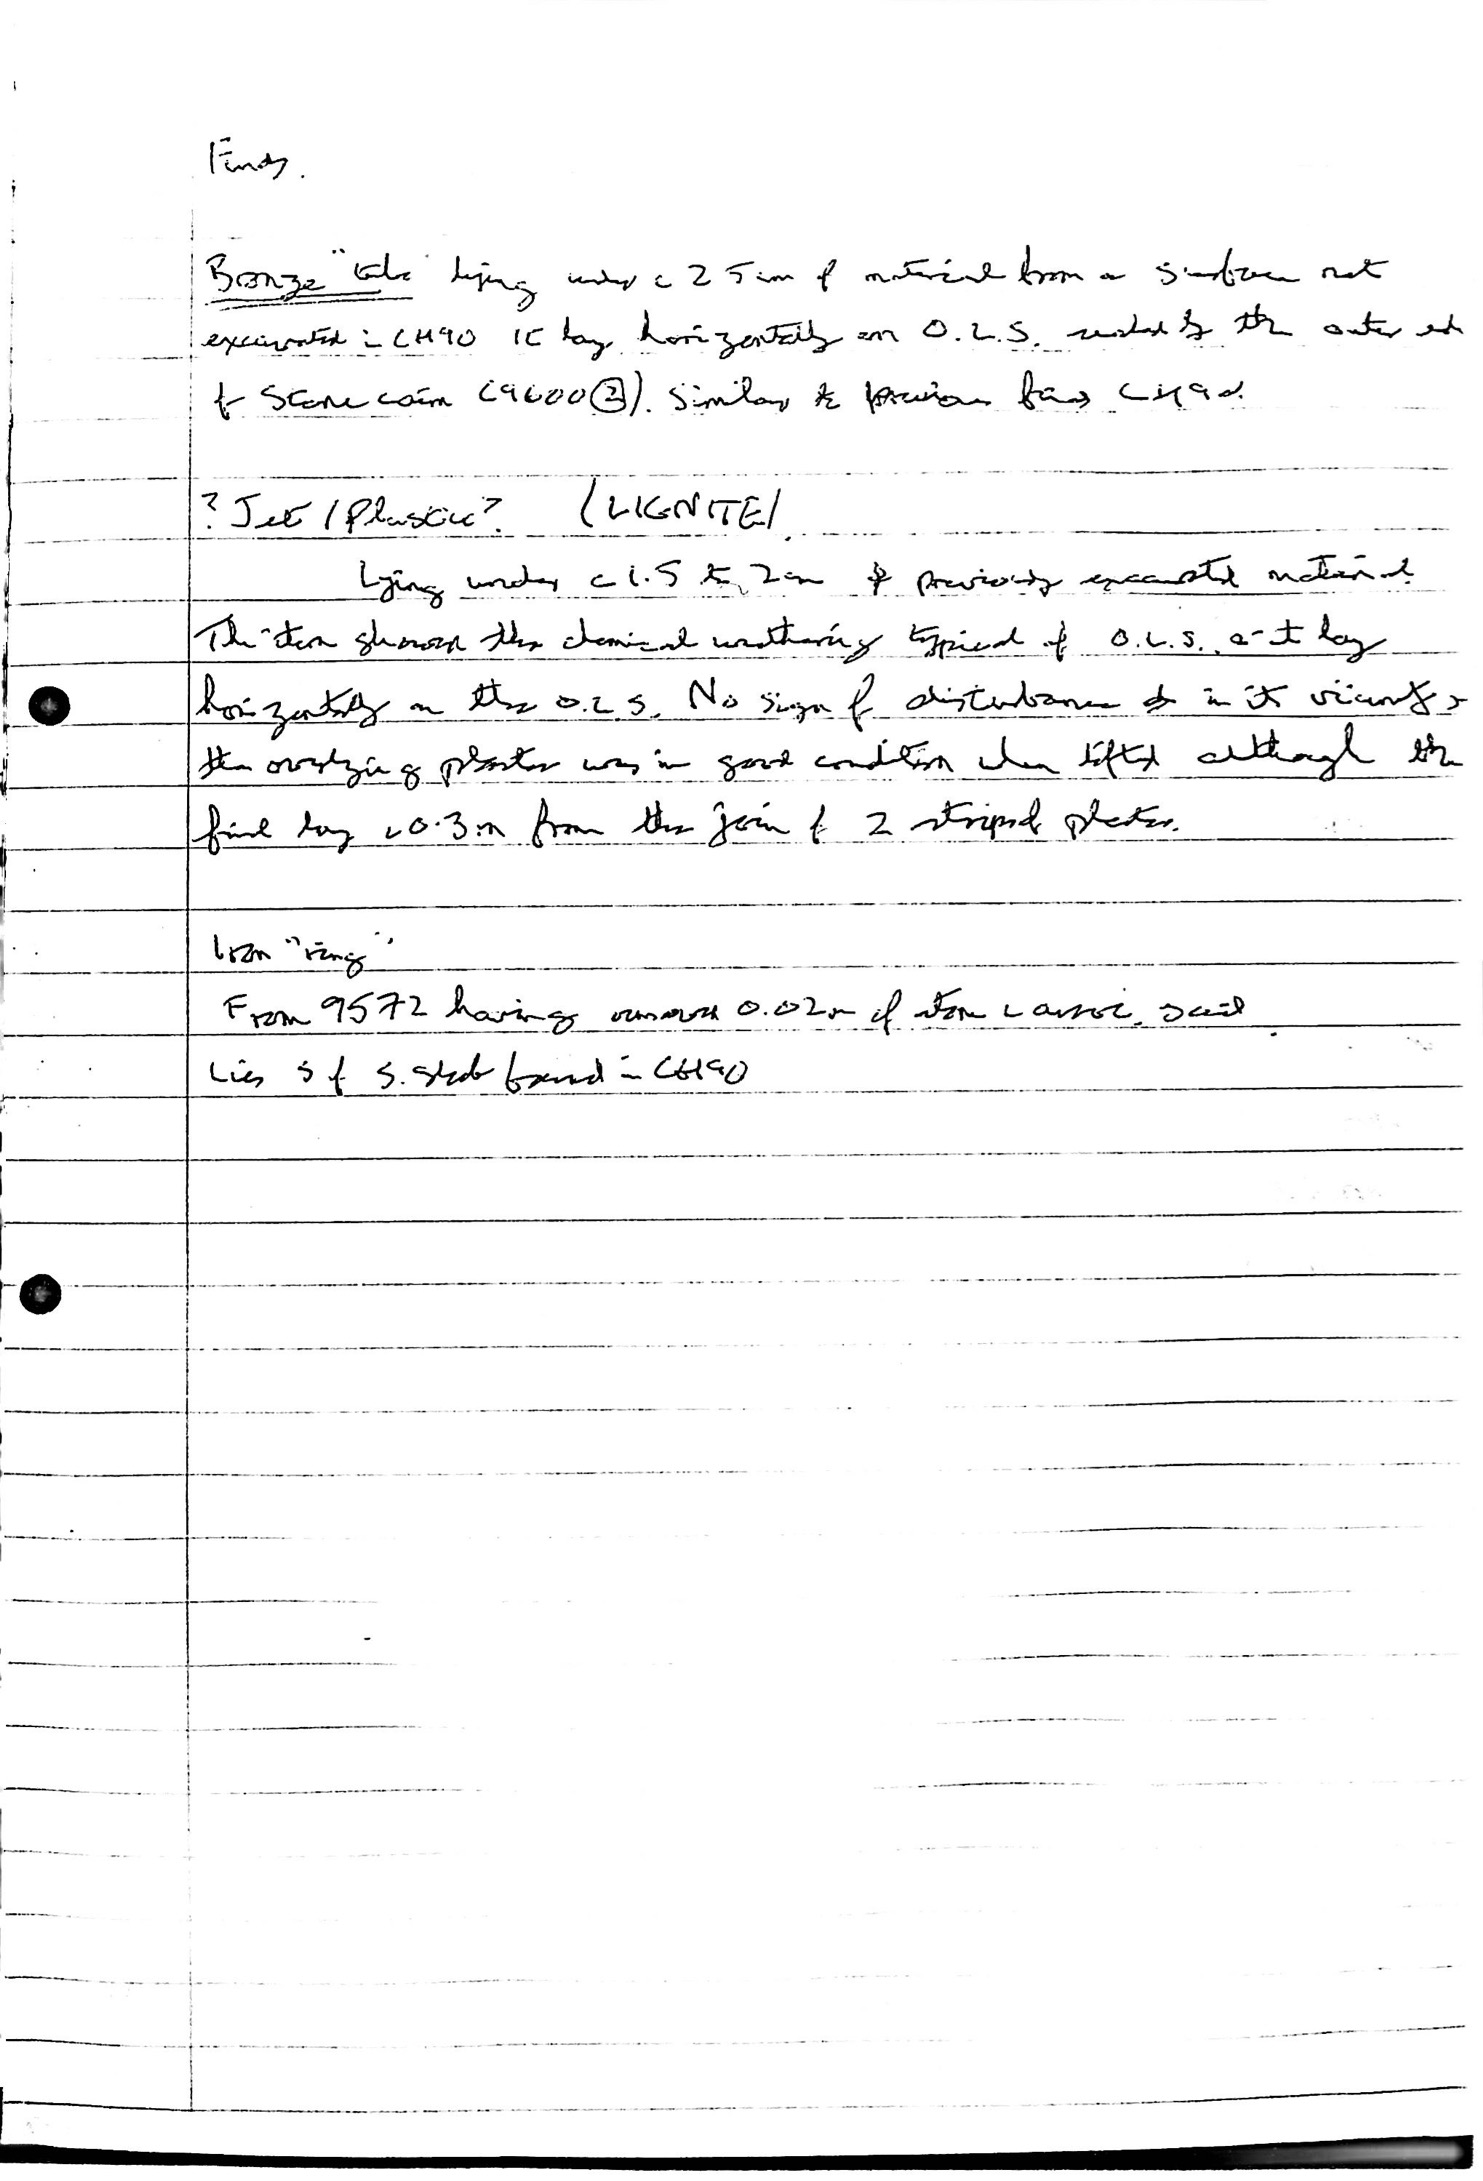 Finds.
Bronze "tube" lying under c 2.5cm of material from a surface not
excavated in CH90 It lay horizontally on O.L.S. sealed by the outer
of Stone cairn (9600 ②). Similar to previous find CH90.
? Jet / Plastic? (LIGNITE)
Lying under c 1.5 to 2cm of previously excavated material.
The item showed the chemical weathering typical of O.L.S. it lay
horizontally on the O.L.S. No sign of disturbance in its vicinity &
the overlying plaster was in good condition when lifted although the
find lay c0.3m from the join of 2 strips of plaster.
Iron "ring"
From 9572 having removed 0.02m of stone & assoc. soil
Lies S of S. slab found in CH90